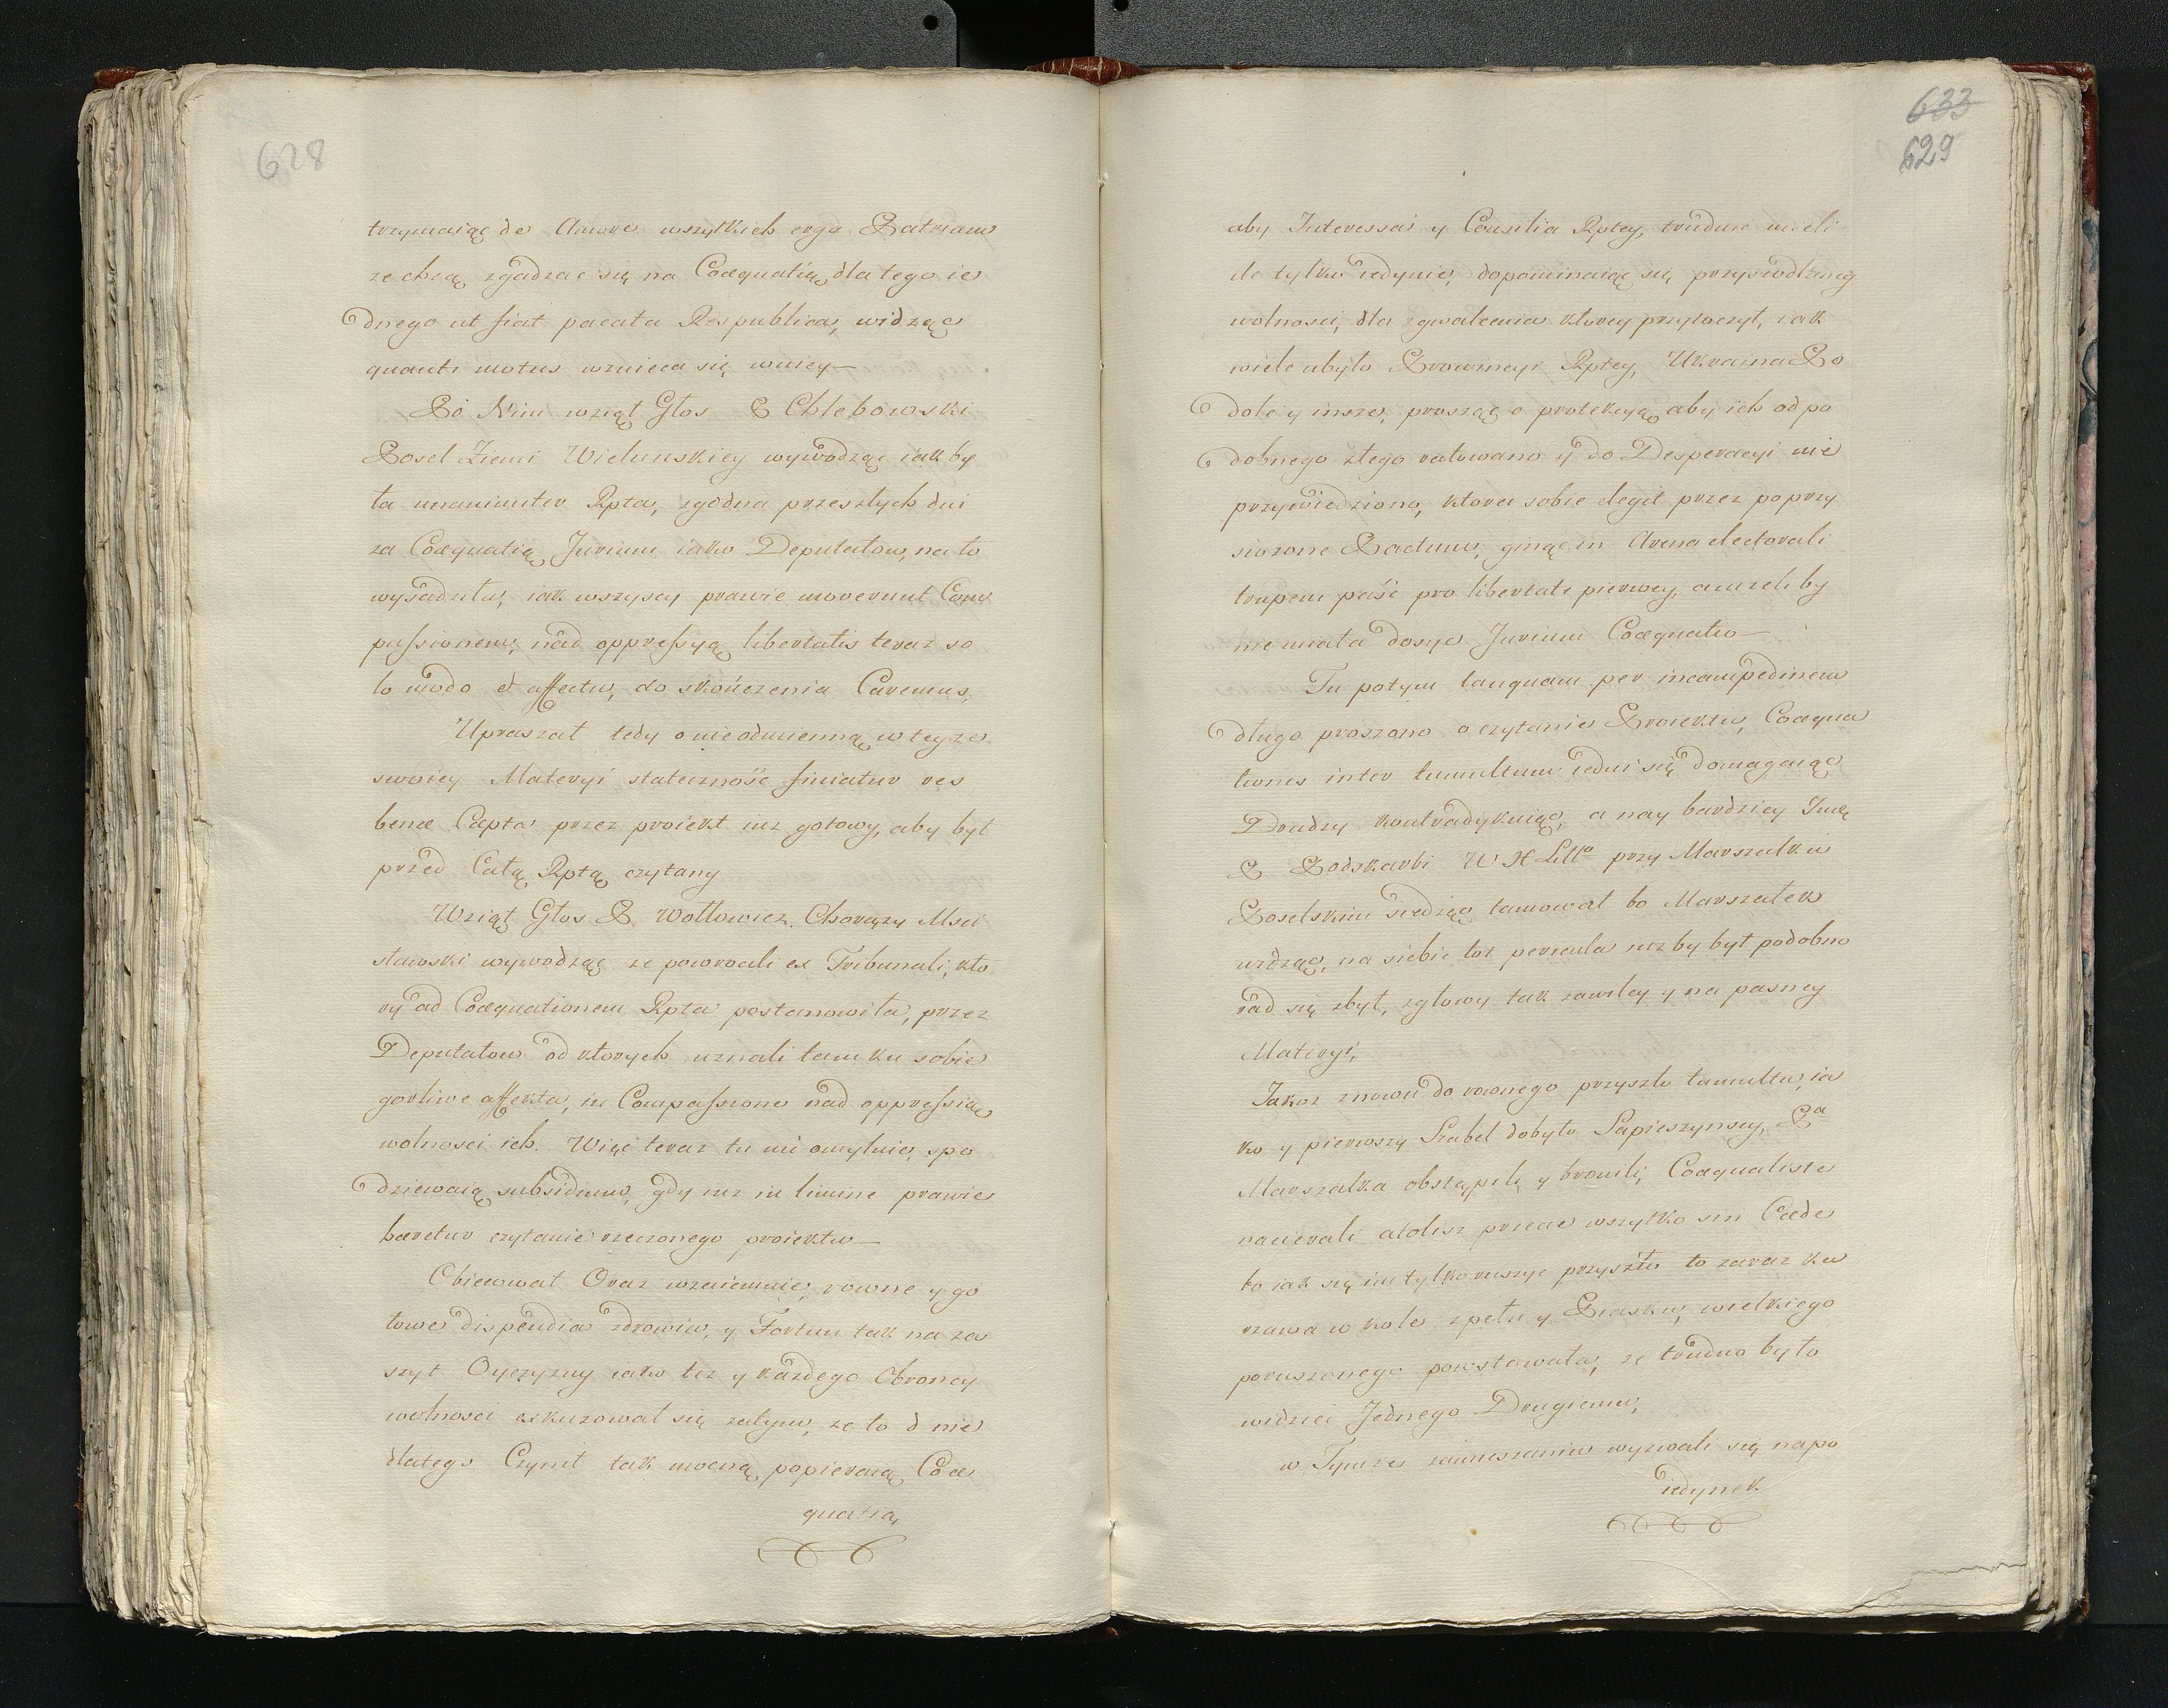 628
trzymaiąc de Amore wszytkich erga Patriam
ze chcą zgadzac się na Coæquatią, dla tego ie
dnego ut fiat pacata Respublica, widząc
quanti motus wznieca się wniey—
Po Nim wziął Głos P Chlebowski
Poseł Ziemi Wielunskiey wywodząc iak by
ta unanimiter Rpta, zgodna przeszłych dni
za Coæquatią Jurium iako Deputatow, na to
wysadziła, iak wszyscy prawie moverunt Com
passionem, nad oppressyą libertatis teraz so
lo modo et affectu, do skończenia Caremus,
Upraszał tedy o nieodmienną w teyze
swoiey Materyi stateczność finiatur res
bene Cæpta przez proiekt iuz gotowy, aby był
przed Całą Rptą czytany
Wziął Głos P. Wołłowicz Chorązy Msci
sławski wywodząc ze powrocili ex Tribunali, kto
ry ad Coæquationem Rpta postanowiła, przez
Deputatow od ktorych uznali tam ku sobie
gorliwe affekta, in Compassione nad oppressią
wolnosci ich. Więc teraz tu nie omylnie, spo
dziewaią subsidium, gdy iuz in limine prawie
haretur czytanie rzeczonego proiektu—
Obiecował Oraz wzaiemnie, rowne y go
towe dispendia zdrowia, y Fortun tak na za
szyt Oyczyzny iako tez y kazdego Obroncy
wolnosci exkuzował się zatym, ze to d nie
dlatego Czynił tak mocną popieraną Coæ
quatią,
633
629
aby Interessa y Consilia Rptey, trudnic mieli
ile tylko iedynie, dopominaiąc się przysiodłaney
wolnosci, dla zgwałcenia ktorey przytoczył, iak
wiele ubyło Prowincyi Rptey, Ukraina Po
dole y insze, prosząc o protekcyą aby ich od po
dobnego złego ratowano y do Desperacyi nie
przywiedziono, ktora sobie elegit przez poprzy
siozone Pactum, ginąc in Arena electorali
trupem paść pro libertate pierwey, anizeli by
nie miała dosyc Jurium Coæquatio—
Tu potym tanquam per incampedinem
długo proszono o czytanie Proiektu, Coæqua
tionis inter tumultum iedni się domagaiąc
Drudzy kontradykuiąc, a nay bardziey Imć
P Podskarbi W X Litto przy Marszałku
Poselskim siedząc tamował bo Marszałek
widząc, na siebie toż pericula iuz by był podobno
rad się zbył, zgłowy tak zawiłey y na pasney
Materyi,
Jakoz znowu do rownego przyszło tumultu, ia
ko y pierwszy Szabel dobyto Sapieszynscy, Pa
Marszałka obstąpili y bronili, Coæqualiste
nacierali atolisz przcie wszytko sin Cæde
bo iak się im tylko ruszyc przyszło to zaraz ku
rzawa w kole zpełu y Piasku, wielkiego
poruszonego powstawała, ze trudno było
widziec Jednego Drugiemu,
w Tymze zamieszaniu wyzwali się na po
iedynek